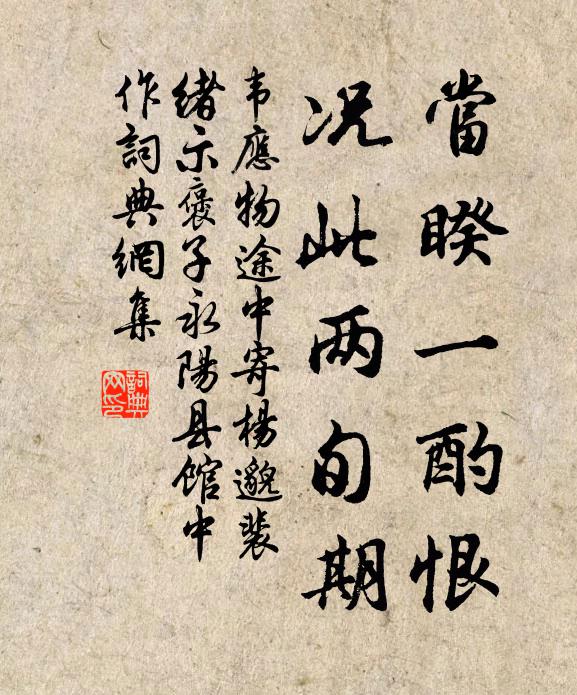 當暌一酌恨
况此两旬期
韦應物途中寄楊邈裴
緒示褒子永陽县館中
作詞典網集
詞典
网印